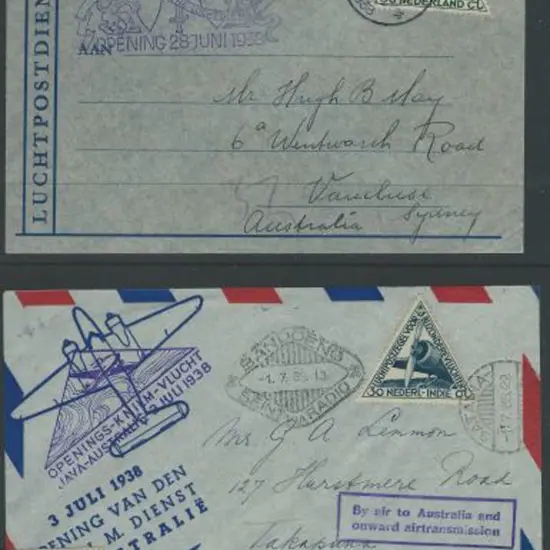 LUCHTPOSTDIEN
OPENING 28 JUNI 1938
AAN
NEDERLAND CT
Mr Hugh B May
6a Wentworth Road
Vaucluse
Sydney
Australia
OPENINGS-K.N.I.L.M.-VLUCHT
JAVA-AUSTRALIË 3 JULI 1938
3 JULI 1938
PENING VAN DEN
L. M. DIENST
STRALIË
BANDOENG
-1. 7. 38. 13
30 NEDERL-INDIE CT
Mr. G A Lemmon
127 Hurstmere Road
Takapuna
By air to Australia and
onward airtransmission